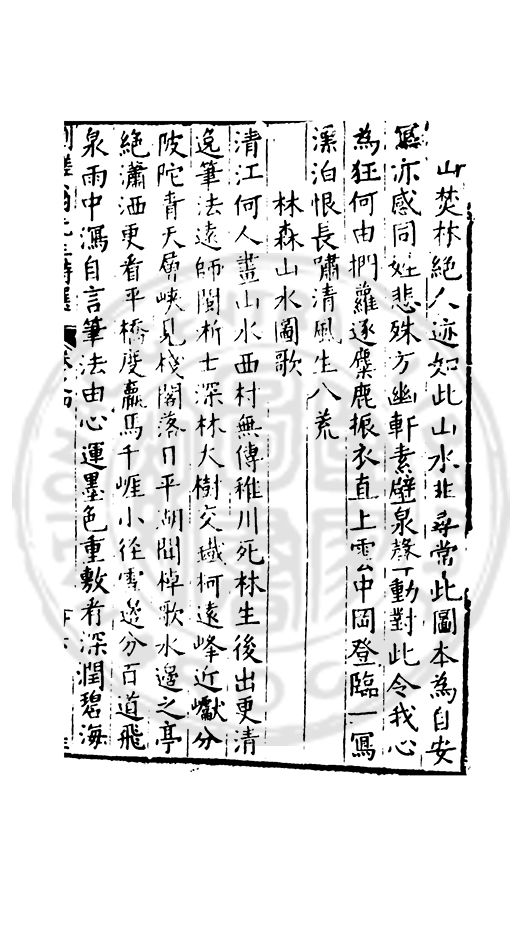 山焚林絕人迹如此山水非尋常此圖本為自安
寫亦感同姓悲殊方幽軒素壁泉聲動對此令我心
為狂何由捫蘿逐麋鹿振衣直上雲中岡登臨一寫
漂泊恨長嘯清風生八荒
林森山水圖歌
清江何人畫山水西村無傳稚川死林生後出更清
逸筆法遠師閩析士深林大樹交鐵柯遠峰近巘分
陂陀青天㬅峽見棧閣落日平湖聞棹歌水邊之亭
絕瀟洒更看平橋度羸馬千崖小徑雪邊分百道飛
泉雨中瀉自言筆法由心運墨色重敷看深潤碧海